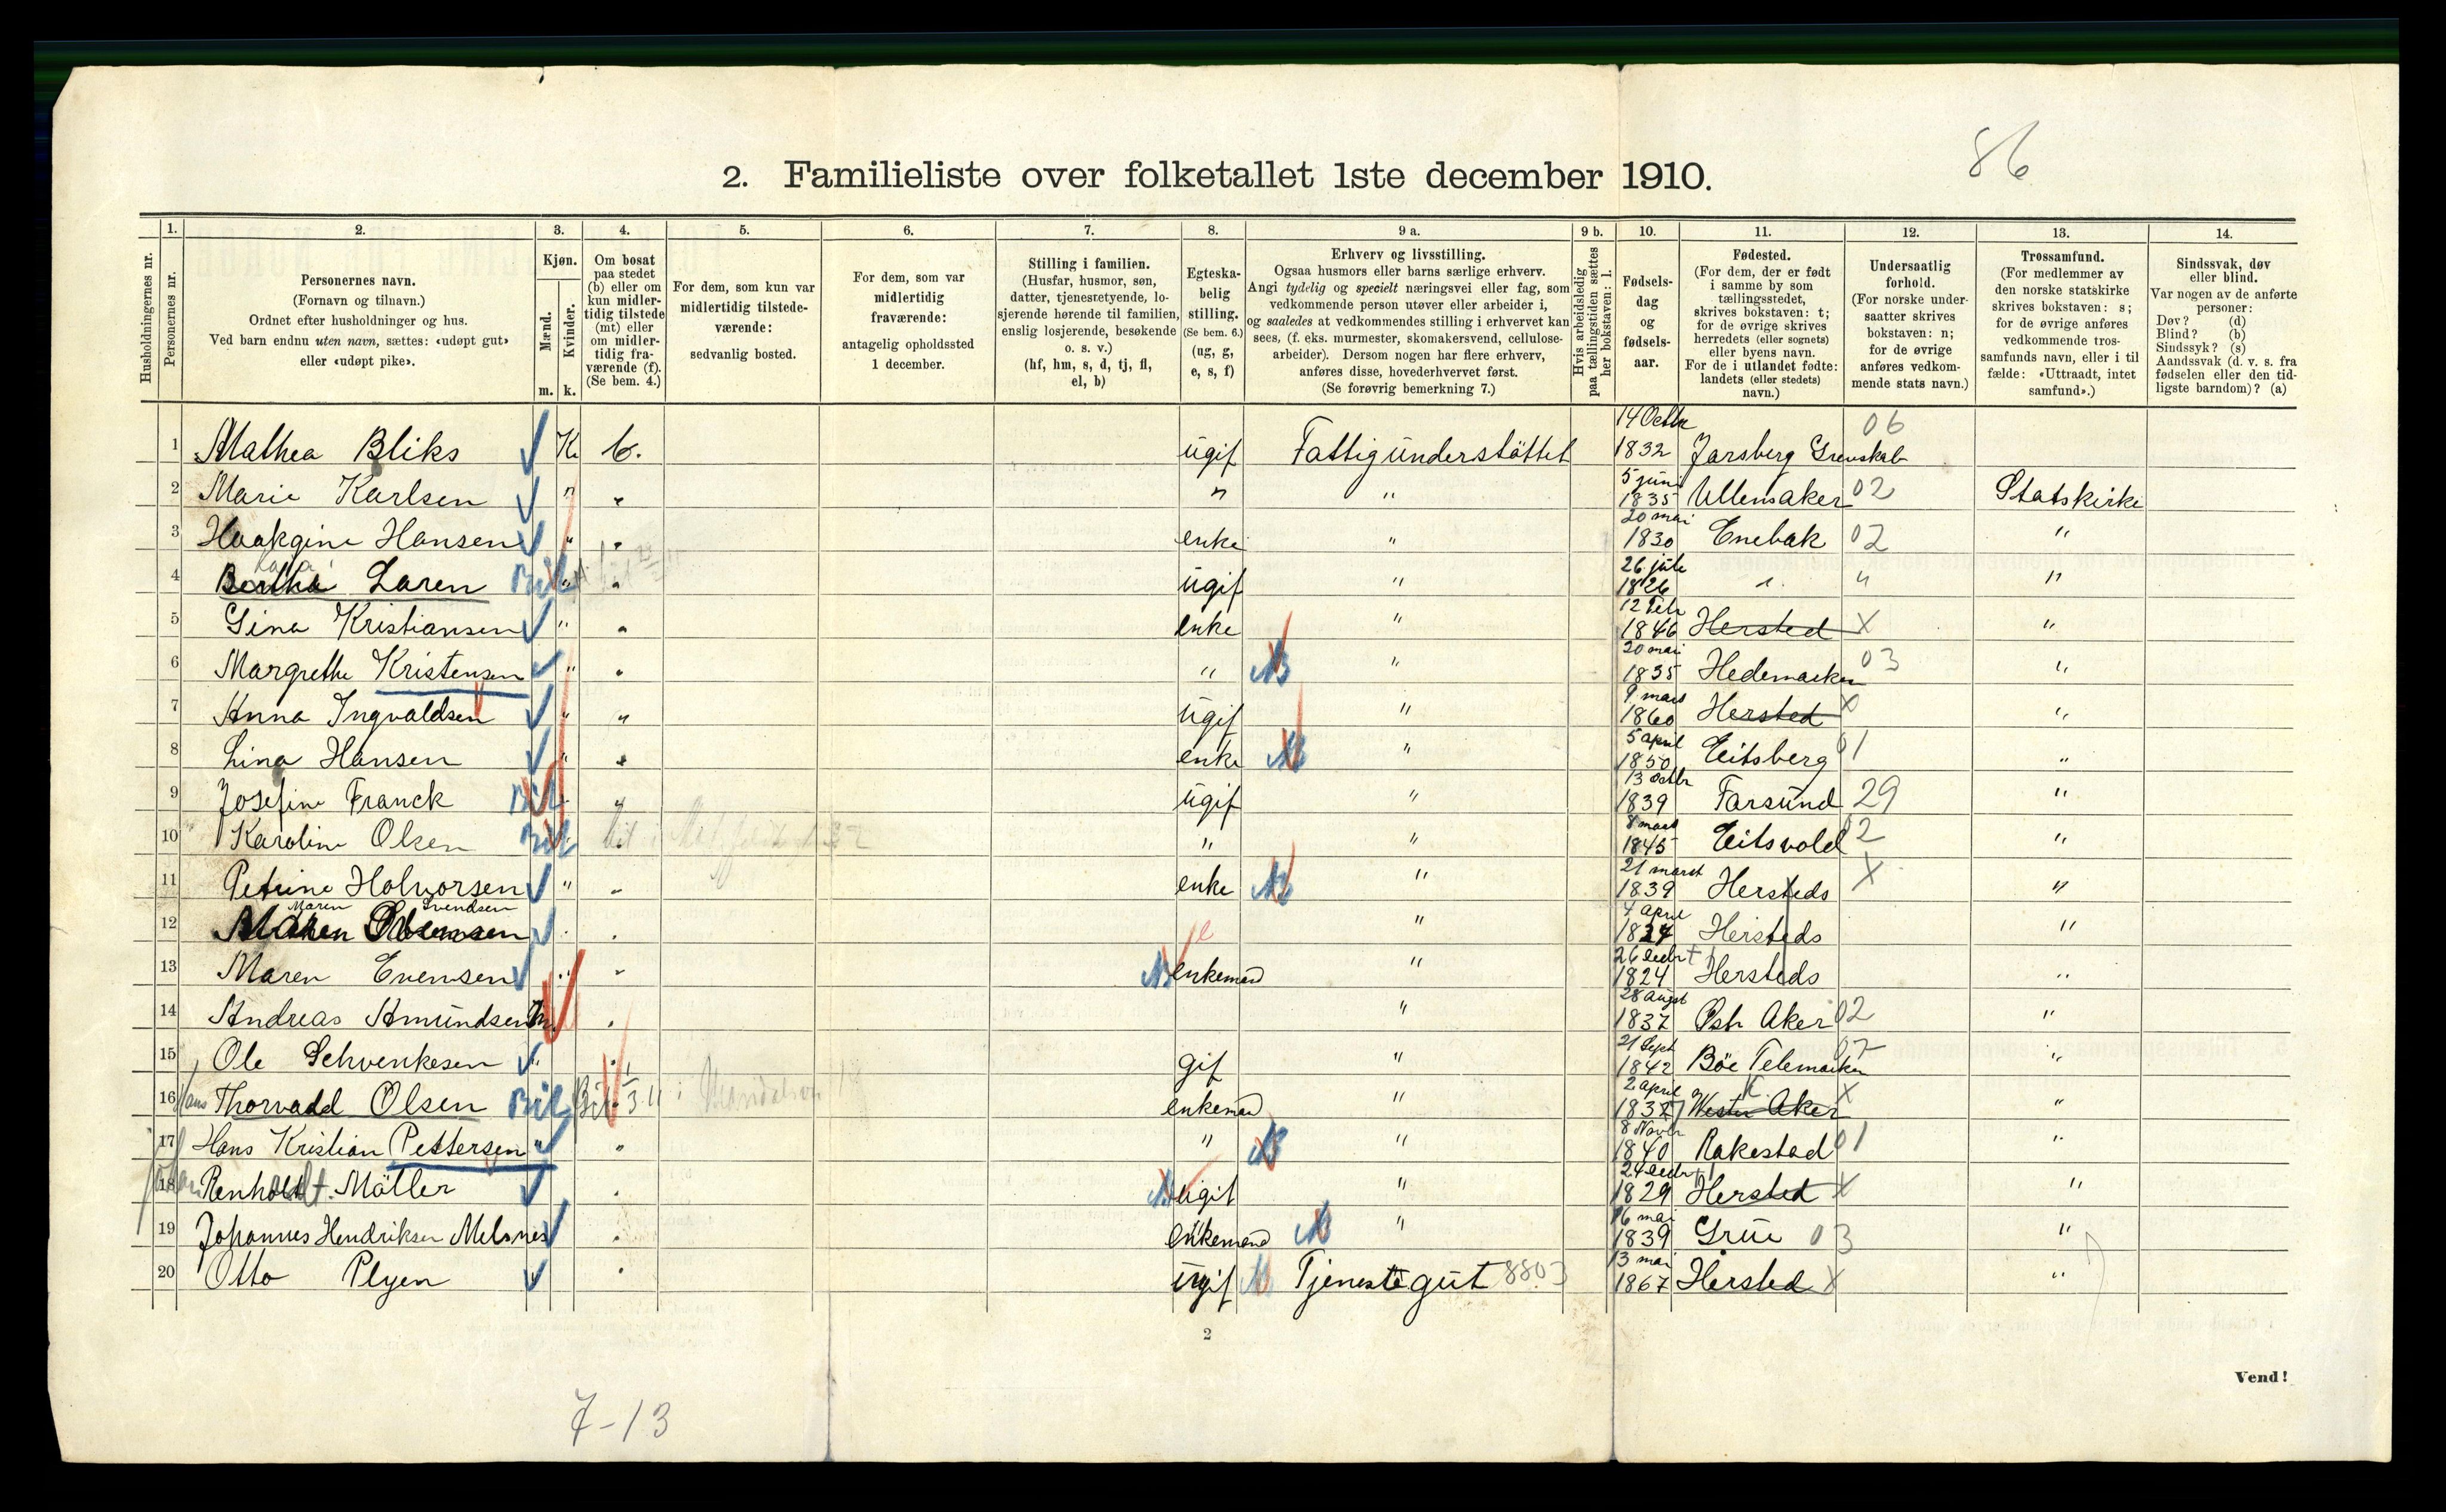 86
2. Familieliste over folketallet 1ste december 1910.
Husholdningernes nr.
1. Personernes nr.
2. Personernes navn.
(Fornavn og tilnavn.)
Ordnet efter husholdninger og hus.
Ved barn endnu uten navn, sættes: «udøpt gut»
eller «udøpt pike».
3. Kjøn.
Mænd. m.
Kvinder. k.
4. Om bosat
paa stedet
(b) eller om
kun midler-
tidig tilstede
(mt) eller
om midler-
tidig fra-
værende (f).
(Se bem. 4.)
5. For dem, som kun var
midlertidig tilstede-
værende:
sedvanlig bosted.
6. For dem, som var
midlertidig
fraværende:
antagelig opholdssted
1 december.
7. Stilling i familien.
(Husfar, husmor, søn,
datter, tjenestetyende, lo-
sjerende hørende til familien,
enslig losjerende, besøkende
o. s. v.)
(hf, hm, s, d, tj, fl,
el, b)
8. Egteska-
belig
stilling.
(Se bem. 6.)
(ug, g,
e, s, f)
9 a. Erhverv og livsstilling.
Ogsaa husmors eller barns særlige erhverv.
Angi tydelig og specielt næringsvei eller fag, som
vedkommende person utøver eller arbeider i,
og saaledes at vedkommendes stilling i erhvervet kan
sees, (f. eks. murmester, skomakersvend, cellulose-
arbeider). Dersom nogen har flere erhverv,
anføres disse, hovederhvervet først.
(Se forøvrig bemerkning 7.)
9 b. Hvis arbeidsledig
paa tællingstiden sættes
her bokstaven: l.
10. Fødsels-
dag
og
fødsels-
aar.
11. Fødested.
(For dem, der er født
i samme by som
tællingsstedet,
skrives bokstaven: t;
for de øvrige skrives
herredets (eller sognets)
eller byens navn.
For de i utlandet fødte:
landets (eller stedets)
navn.)
12. Undersaatlig
forhold.
(For norske under-
saatter skrives
bokstaven: n;
for de øvrige
anføres vedkom-
mende stats navn.)
13. Trossamfund.
(For medlemmer av
den norske statskirke
skrives bokstaven: s;
for de øvrige anføres
vedkommende tros-
samfunds navn, eller i til
fælde: «Uttraadt, intet
samfund».)
14. Sindssvak, døv
eller blind.
Var nogen av de anførte
personer:
Døv? (d)
Blind? (b)
Sindssyk? (s)
Aandssvak (d. v. s. fra
fødselen eller den tid-
ligste barndom)? (a)
1 Mathea Bliks K. b. ugif Fattigunderstöttet 14 Octbr 1832 Jarsberg Grevskab 06
2 Marie Karlsen " " " " 5 juni 1835 Ullensaker 02 Statskirke
3 Haakgine Hansen " " enke " 20 mai 1830 Enebak 02 "
4 Laren Bil " " ugif " 26 1826 " " "
5 Gina Kristiansen " " enke " 12 Febr 1846 Hersted X "
6 Margrethe Kristensen " " " " 20 mai 1835 Hedemarken 03 "
7 Anna Ingvaldsen " " ugif " 9 mars 1860 Hersted X "
8 Lina Hansen " " enke " 5 april 1850 Eitsberg 01 "
9 Josefine Franck Bil " ugif " 13 Octbr 1839 Farsund 29 "
10 Karoline Olsen Bil " " 8 mars 1845 Eitsvold 02 "
11 Petrine Holvorsen " " enke " 21 marst 1839 Hersteds X "
12 Maren Svendsen " " e " 4 April Hersteds "
13 Maren Evensen " " enkemand " 26 1824 Hersteds "
14 Andreas Amundsen m. " " 28 Augst 1837 Østr Aker 02 "
15 Ole Schvenkesen " " gif " 21 Sept 1842 Böe Telemarken 07 "
16 Hans Thorvadd Olsen Bil enkemand " 2 april 1837 Westr Aker X "
17 Hans Kristian Pettersen " " " " 8 Novbr 1840 Rakestad 01 "
18 Renholdt Möller " ugift " 24 1829 Hersted X "
19 Johannes Hendriksen Melsnes " enkemand " 16 mai 1839 Grue 03 "
20 Otto Plyen " ugif Tjenestegut 8803 13 mai 1867 Hersted X "
2
Vend!
7-13